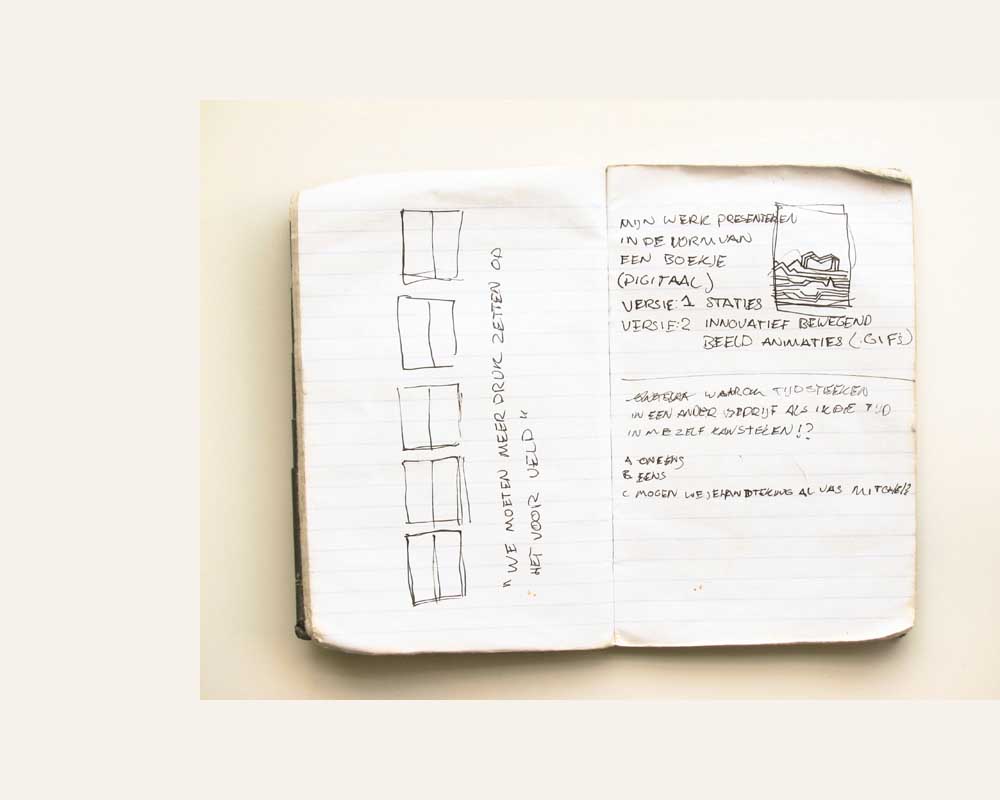 "WE MOETEN MEER DRUK ZETTEN OP
HET VOOR VELD"
MIJN WERK PRESENTEREN
IN DE VORM VAN
EEN BOEKJE
(DIGITAAL)
VERSIE: 1 STATIES
VERSIE: 2 INNOVATIEF BEWEGEND
BEELD ANIMATIES (.GIFS)
WAAROM TIJD STEEKEN
IN EEN ANDER BEDRIJF ALS IK DIE TIJD
IN MEZELF KAN STEKEN!?
A ONEENS
B EENS
C MOGEN WE JE HANDTEKING AL VAST